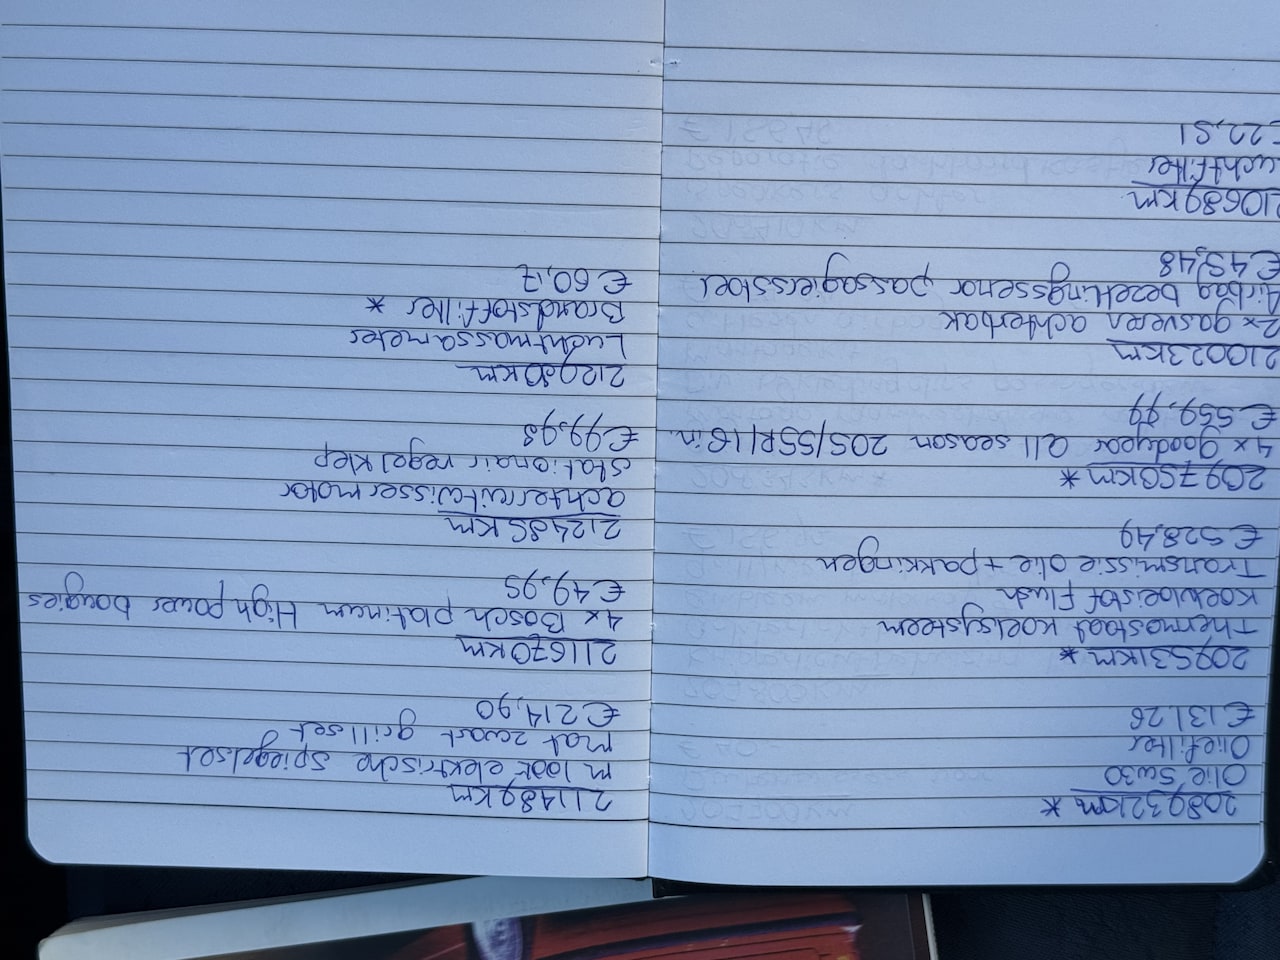 208932km *
Olie 5w30
Oliefilter
€131,26
209531km *
Thermostaat koelsysteem
Koelvloeistof flush
Transmissie olie + pakkingen
€528,49
209750km *
4x goodyear all season 205/55R/16 in.
€559,99
210023km
2x gasveren achterbak
Airbag bezettingssensor passagiersstoel
€45,48
210689km
Luchtfilter
€22,51
211489km
m look elektrische spiegelset
mat zwart grillset
€214,90
211670km
4x Bosch platinum High power bougies
€49,95
212485km
achterruitwissermotor
stationair regelklep
€99,98
212980km
Luchtmassameter
Brandstoffilter *
€60,17